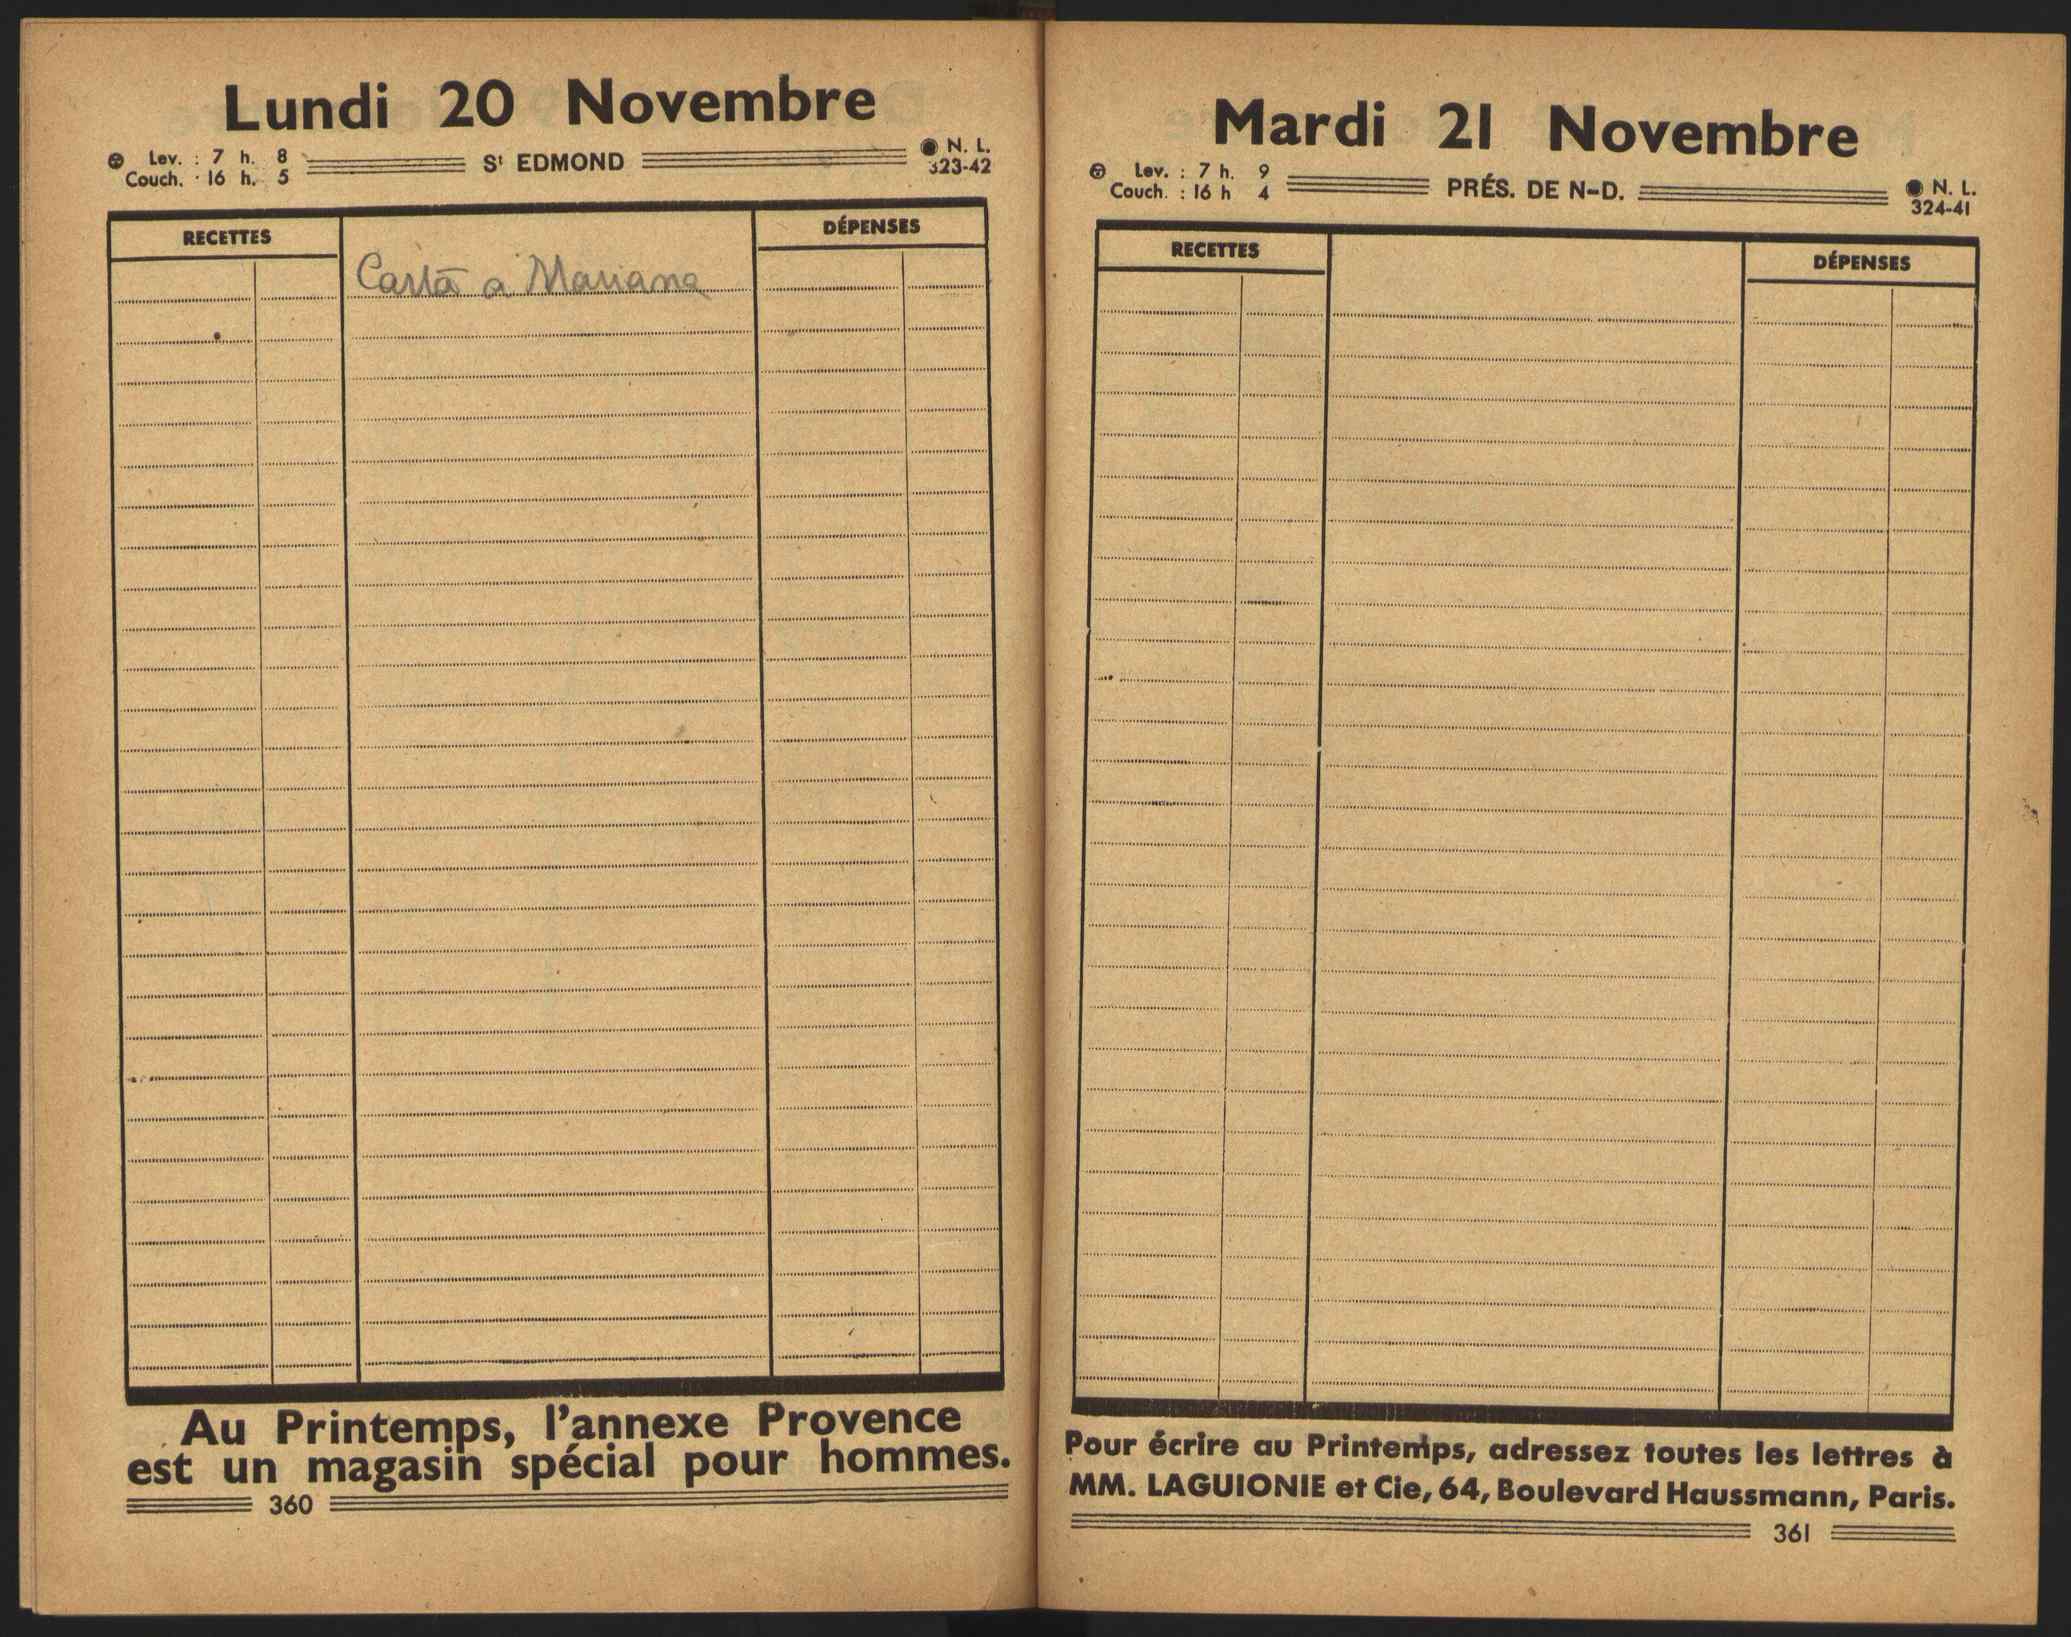 Lundi 20 Novembre
Lev. : 7 h. 8
Couch. : 16 h. 5
St EDMOND
N. L.
323-42
RECETTES
DÉPENSES
Carta a Mariana
Au Printemps, l'annexe Provence
est un magasin spécial pour hommes.
360
Mardi 21 Novembre
Lev. : 7 h. 9
Couch. : 16 h 4
PRÉS. DE N-D.
N. L.
324-41
RECETTES
DÉPENSES
Pour écrire au Printemps, adressez toutes les lettres à
MM. LAGUIONIE et Cie, 64, Boulevard Haussmann, Paris.
361